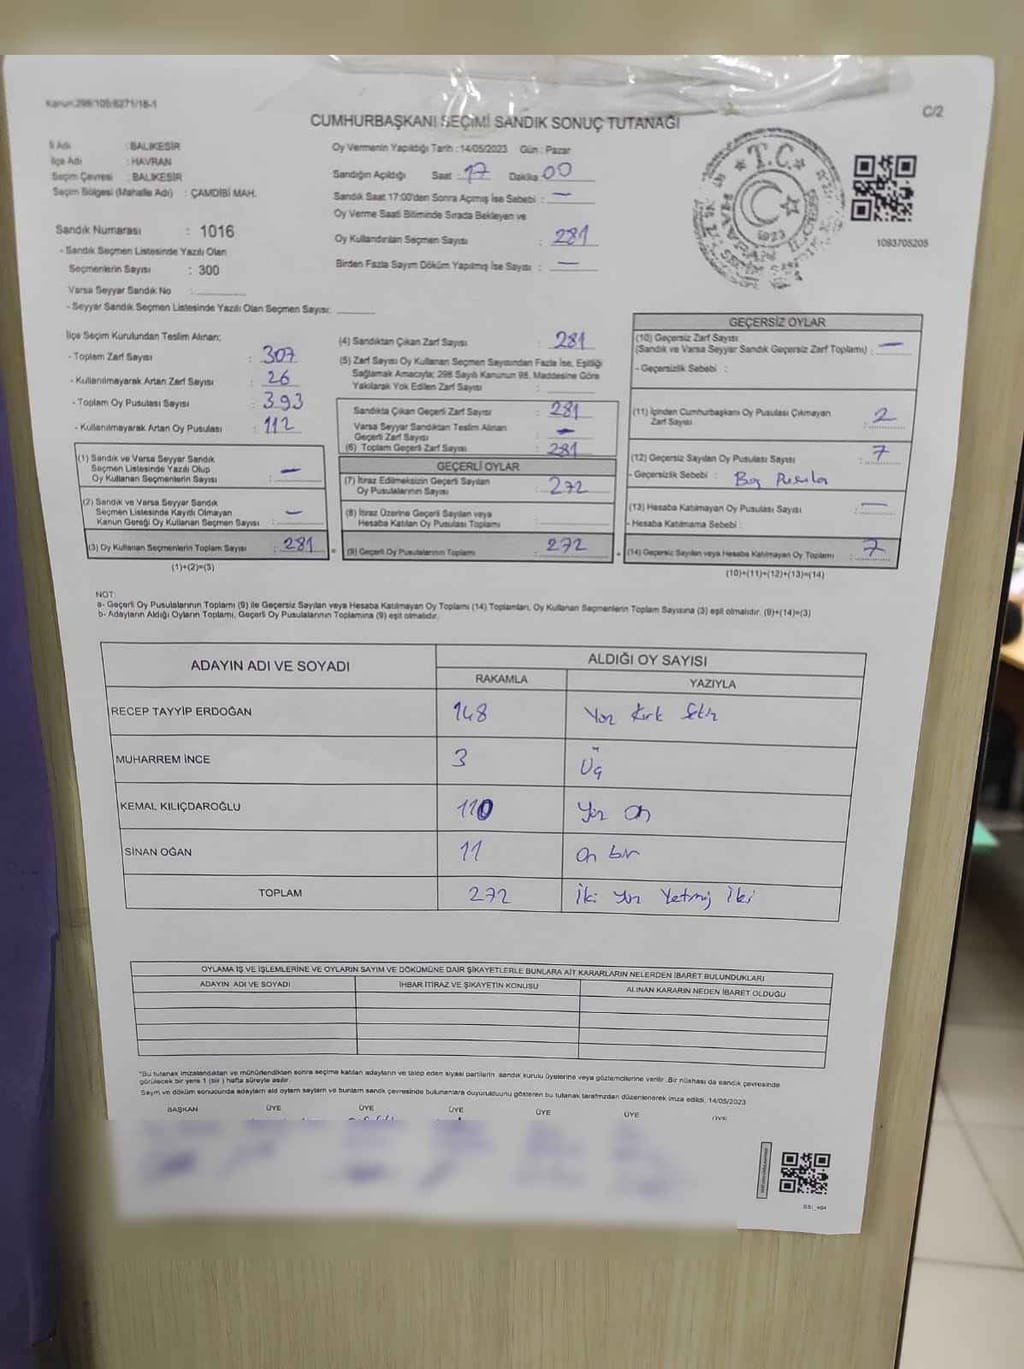 Kanun:298/105/6271/18-1
C/2
CUMHURBAŞKANI SEÇİMİ SANDIK SONUÇ TUTANAĞI
İl Adı : BALIKESİR
İlçe Adı : HAVRAN
Seçim Çevresi : BALIKESİR
Seçim Bölgesi (Mahalle Adı) : ÇAMDİBİ MAH.
Sandık Numarası : 1016
- Sandık Seçmen Listesinde Yazılı Olan
Seçmenlerin Sayısı : 300
Varsa Seyyar Sandık No :
- Seyyar Sandık Seçmen Listesinde Yazılı Olan Seçmen Sayısı:
Oy Vermenin Yapıldığı Tarih : 14/05/2023 Gün : Pazar
Sandığın Açıldığı Saat : 17 Dakika 00
Sandık Saat 17:00'den Sonra Açımış İse Sebebi : —
Oy Verme Saati Bitiminde Sırada Bekleyen ve
Oy Kullandırılan Seçmen Sayısı : 281
Birden Fazla Sayım Döküm Yapılmış İse Sayısı : —
T.C.
1923
1093705205
İlçe Seçim Kurulundan Teslim Alınan;
- Toplam Zarf Sayısı : 307
- Kullanılmayarak Artan Zarf Sayısı : 26
- Toplam Oy Pusulası Sayısı : 393
- Kullanılmayarak Artan Oy Pusulası : 112
(1) Sandık ve Varsa Seyyar Sandık
Seçmen Listesinde Yazılı Olup
Oy Kullanan Seçmenlerin Sayısı : —
(2) Sandık ve Varsa Seyyar Sandık
Seçmen Listesinde Kayıtlı Olmayan
Kanun Gereği Oy Kullanan Seçmen Sayısı : —
(3) Oy Kullanan Seçmenlerin Toplam Sayısı : 281
(1)+(2)=(3)
(4) Sandıktan Çıkan Zarf Sayısı : 281
(5) Zarf Sayısı Oy Kullanan Seçmen Sayısından Fazla İse, Eşitliği
Sağlamak Amacıyla; 298 Sayılı Kanunun 98. Maddesine Göre
Yakılarak Yok Edilen Zarf Sayısı :
Sandıkta Çıkan Geçerli Zarf Sayısı : 281
Varsa Seyyar Sandıktan Teslim Alınan
Geçerli Zarf Sayısı : —
(6) Toplam Geçerli Zarf Sayısı : 281
GEÇERLİ OYLAR
(7) İtiraz Edilmeksizin Geçerli Sayılan
Oy Pusulalarının Sayısı : 272
(8) İtiraz Üzerine Geçerli Sayılan veya
Hesaba Katılan Oy Pusulası Toplamı :
(9) Geçerli Oy Pusulalarının Toplamı : 272
GEÇERSİZ OYLAR
(10) Geçersiz Zarf Sayısı
(Sandık ve Varsa Seyyar Sandık Geçersiz Zarf Toplamı) : —
- Geçersizlik Sebebi :
(11) İçinden Cumhurbaşkanı Oy Pusulası Çıkmayan
Zarf Sayısı : 2
(12) Geçersiz Sayılan Oy Pusulası Sayısı : 7
- Geçersizlik Sebebi : Boş Pusula
(13) Hesaba Katılmayan Oy Pusulası Sayısı : —
- Hesaba Katılmama Sebebi :
(14) Geçersiz Sayılan veya Hesaba Katılmayan Oy Toplamı : 7
(10)+(11)+(12)+(13)=(14)
NOT:
a- Geçerli Oy Pusulalarının Toplamı (9) ile Geçersiz Sayılan veya Hesaba Katılmayan Oy Toplamı (14) Toplamları, Oy Kullanan Seçmenlerin Toplam Sayısına (3) eşit olmalıdır. (9)+(14)=(3)
b- Adayların Aldığı Oyların Toplamı, Geçerli Oy Pusulalarının Toplamına (9) eşit olmalıdır.
ADAYIN ADI VE SOYADI ALDIĞI OY SAYISI
RAKAMLA YAZIYLA
RECEP TAYYİP ERDOĞAN 148 Yüz Kırk Sekiz
MUHARREM İNCE 3 Üç
KEMAL KILIÇDAROĞLU 110 Yüz On
SİNAN OĞAN 11 On bir
TOPLAM 272 İki Yüz Yetmiş İki
OYLAMA İŞ VE İŞLEMLERİNE VE OYLARIN SAYIM VE DÖKÜMÜNE DAİR ŞİKAYETLERLE BUNLARA AİT KARARLARIN NELERDEN İBARET BULUNDUKLARI
ADAYIN ADI VE SOYADI İHBAR İTİRAZ VE ŞİKAYETİN KONUSU ALINAN KARARIN NEDEN İBARET OLDUĞU
*Bu tutanak imzalandıktan ve mühürlendikten sonra seçime katılan adayların ve talep eden siyasi partilerin sandık kurulu üyelerine veya gözlemcilerine verilir. Bir nüshası da sandık çevresinde
görülecek bir yere 1 (bir) hafta süreyle asılır.
Sayım ve döküm sonucunda adayların ald oyların sayıların ve bunların sandık çevresinde bulunanlara duyurulduğunu gösteren bu tutanak tarafımızdan düzenlenerek imza edildi. 14/05/2023
BAŞKAN ÜYE ÜYE ÜYE ÜYE ÜYE ÜYE